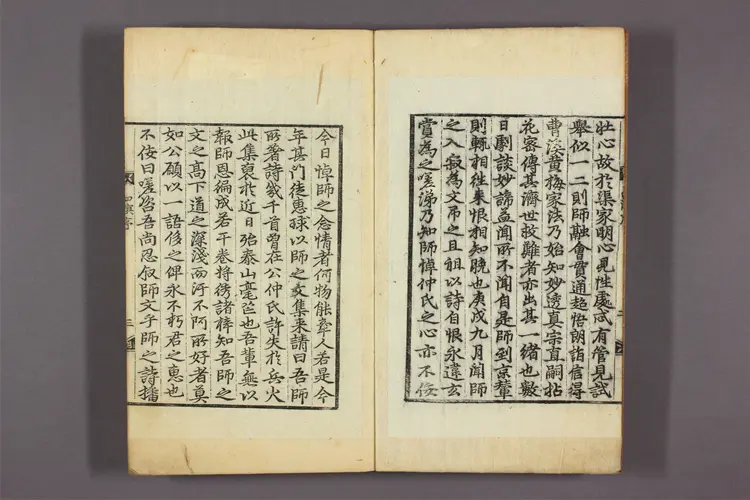 壯心故於渠家明心見性處或有管見試
舉似一二則師融會貫通超悟朗詣信得
曹溪黃梅家法乃始知妙透真宗直嗣拈
花密傳其濟世救難者亦出其一緒也數
日劇談妙諦益聞所不聞自是師到京輦
則輒相往來恨相知晚也庚戌九月聞師
之入寂為文吊之且祖以詩自恨永違玄
賞為之嗟涕乃知師悼仲氏之心亦不佞
今日悼師之念情者何物能牽人若是今
年其門徒惠球以師之文集來請曰吾師
所著詩幾千首曾在公仲氏許失於兵火
此集裒於近日殆泰山毫芒也吾輩無以
報師恩徧成若干卷將銹諸梓知吾師之
文之高下道之深淺而汙不阿所好者莫
如公願以一語侈之俾永不朽君之惠也
不佞曰嗟咨吾尚忍叙師文乎師之詩播